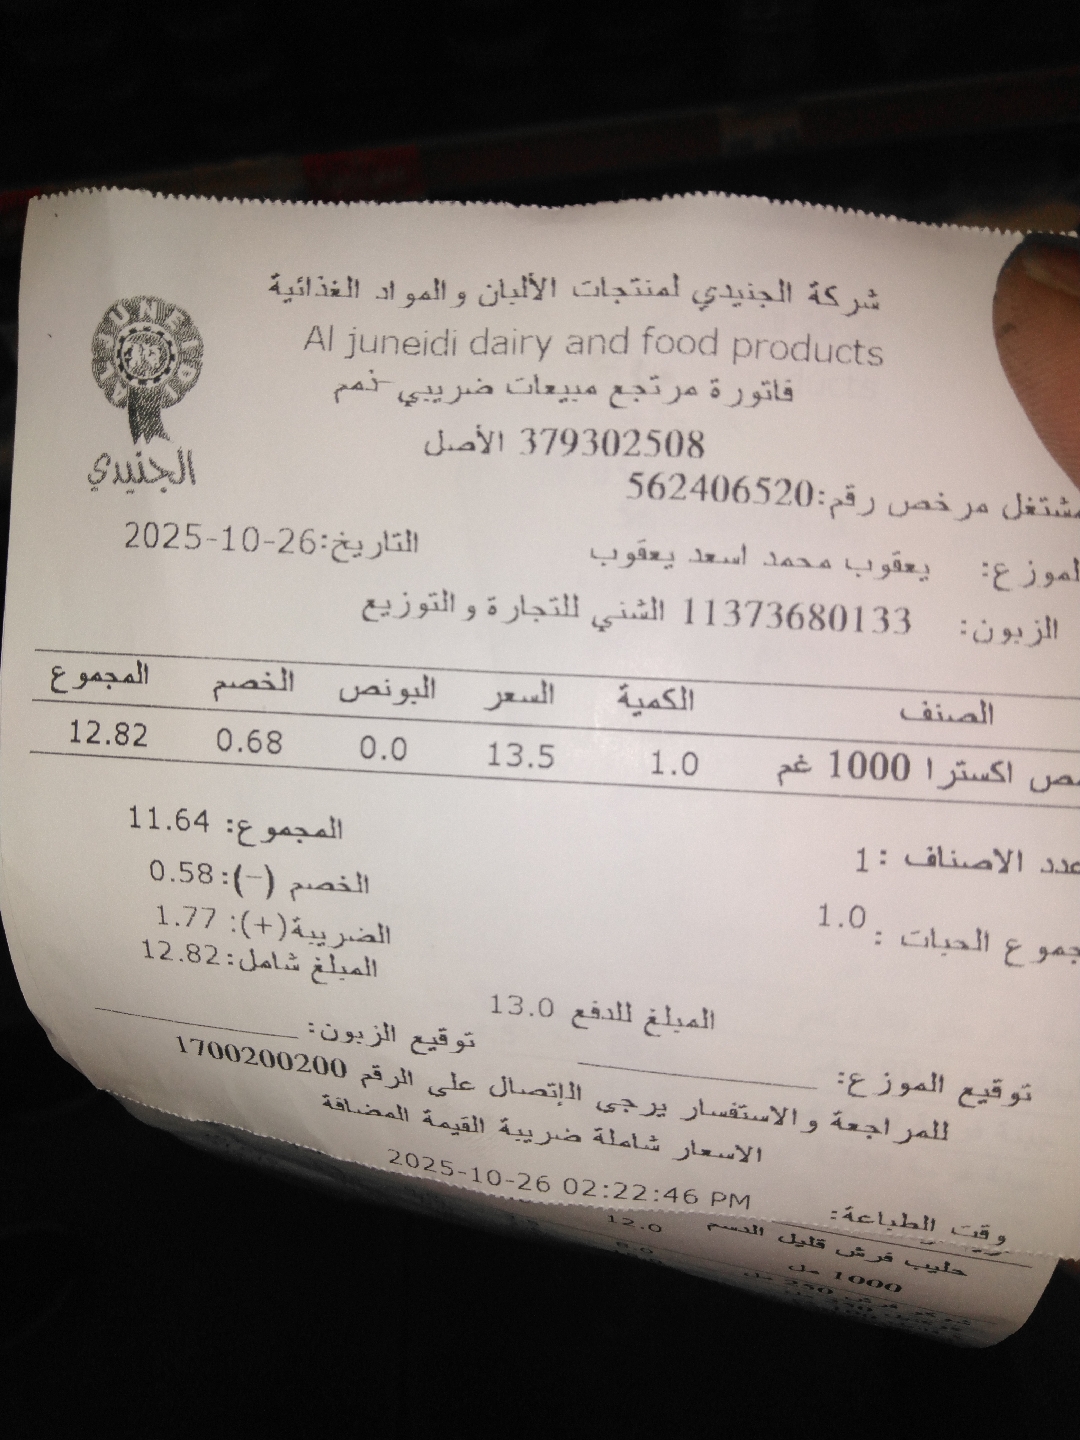 شركة الجنيدي لمنتجات الألبان والمواد الغذائية
Al juneidi dairy and food products
AL JUNEIDI
الجنيدي
فاتورة مرتجع مبيعات ضريبي-ذمم
379302508 الأصل
مشتغل مرخص رقم:562406520
الموزع: يعقوب محمد اسعد يعقوب التاريخ:2025-10-26
الزبون: 11373680133 الشني للتجارة والتوزيع
الصنف الكمية السعر البونص الخصم المجموع
اكسترا 1000 غم 1.0 13.5 0.0 0.68 12.82
عدد الاصناف : 1 المجموع: 11.64
مجموع الحبات : 1.0 الخصم (-):0.58
الضريبة(+): 1.77
المبلغ شامل:12.82
المبلغ للدفع 13.0
توقيع الموزع: توقيع الزبون:
للمراجعة والاستفسار يرجى الإتصال على الرقم 1700200200
الاسعار شاملة ضريبة القيمة المضافة
وقت الطباعة: 2025-10-26 02:22:46 PM
حليب فرش قليل الدسم 12.0
1000 مل